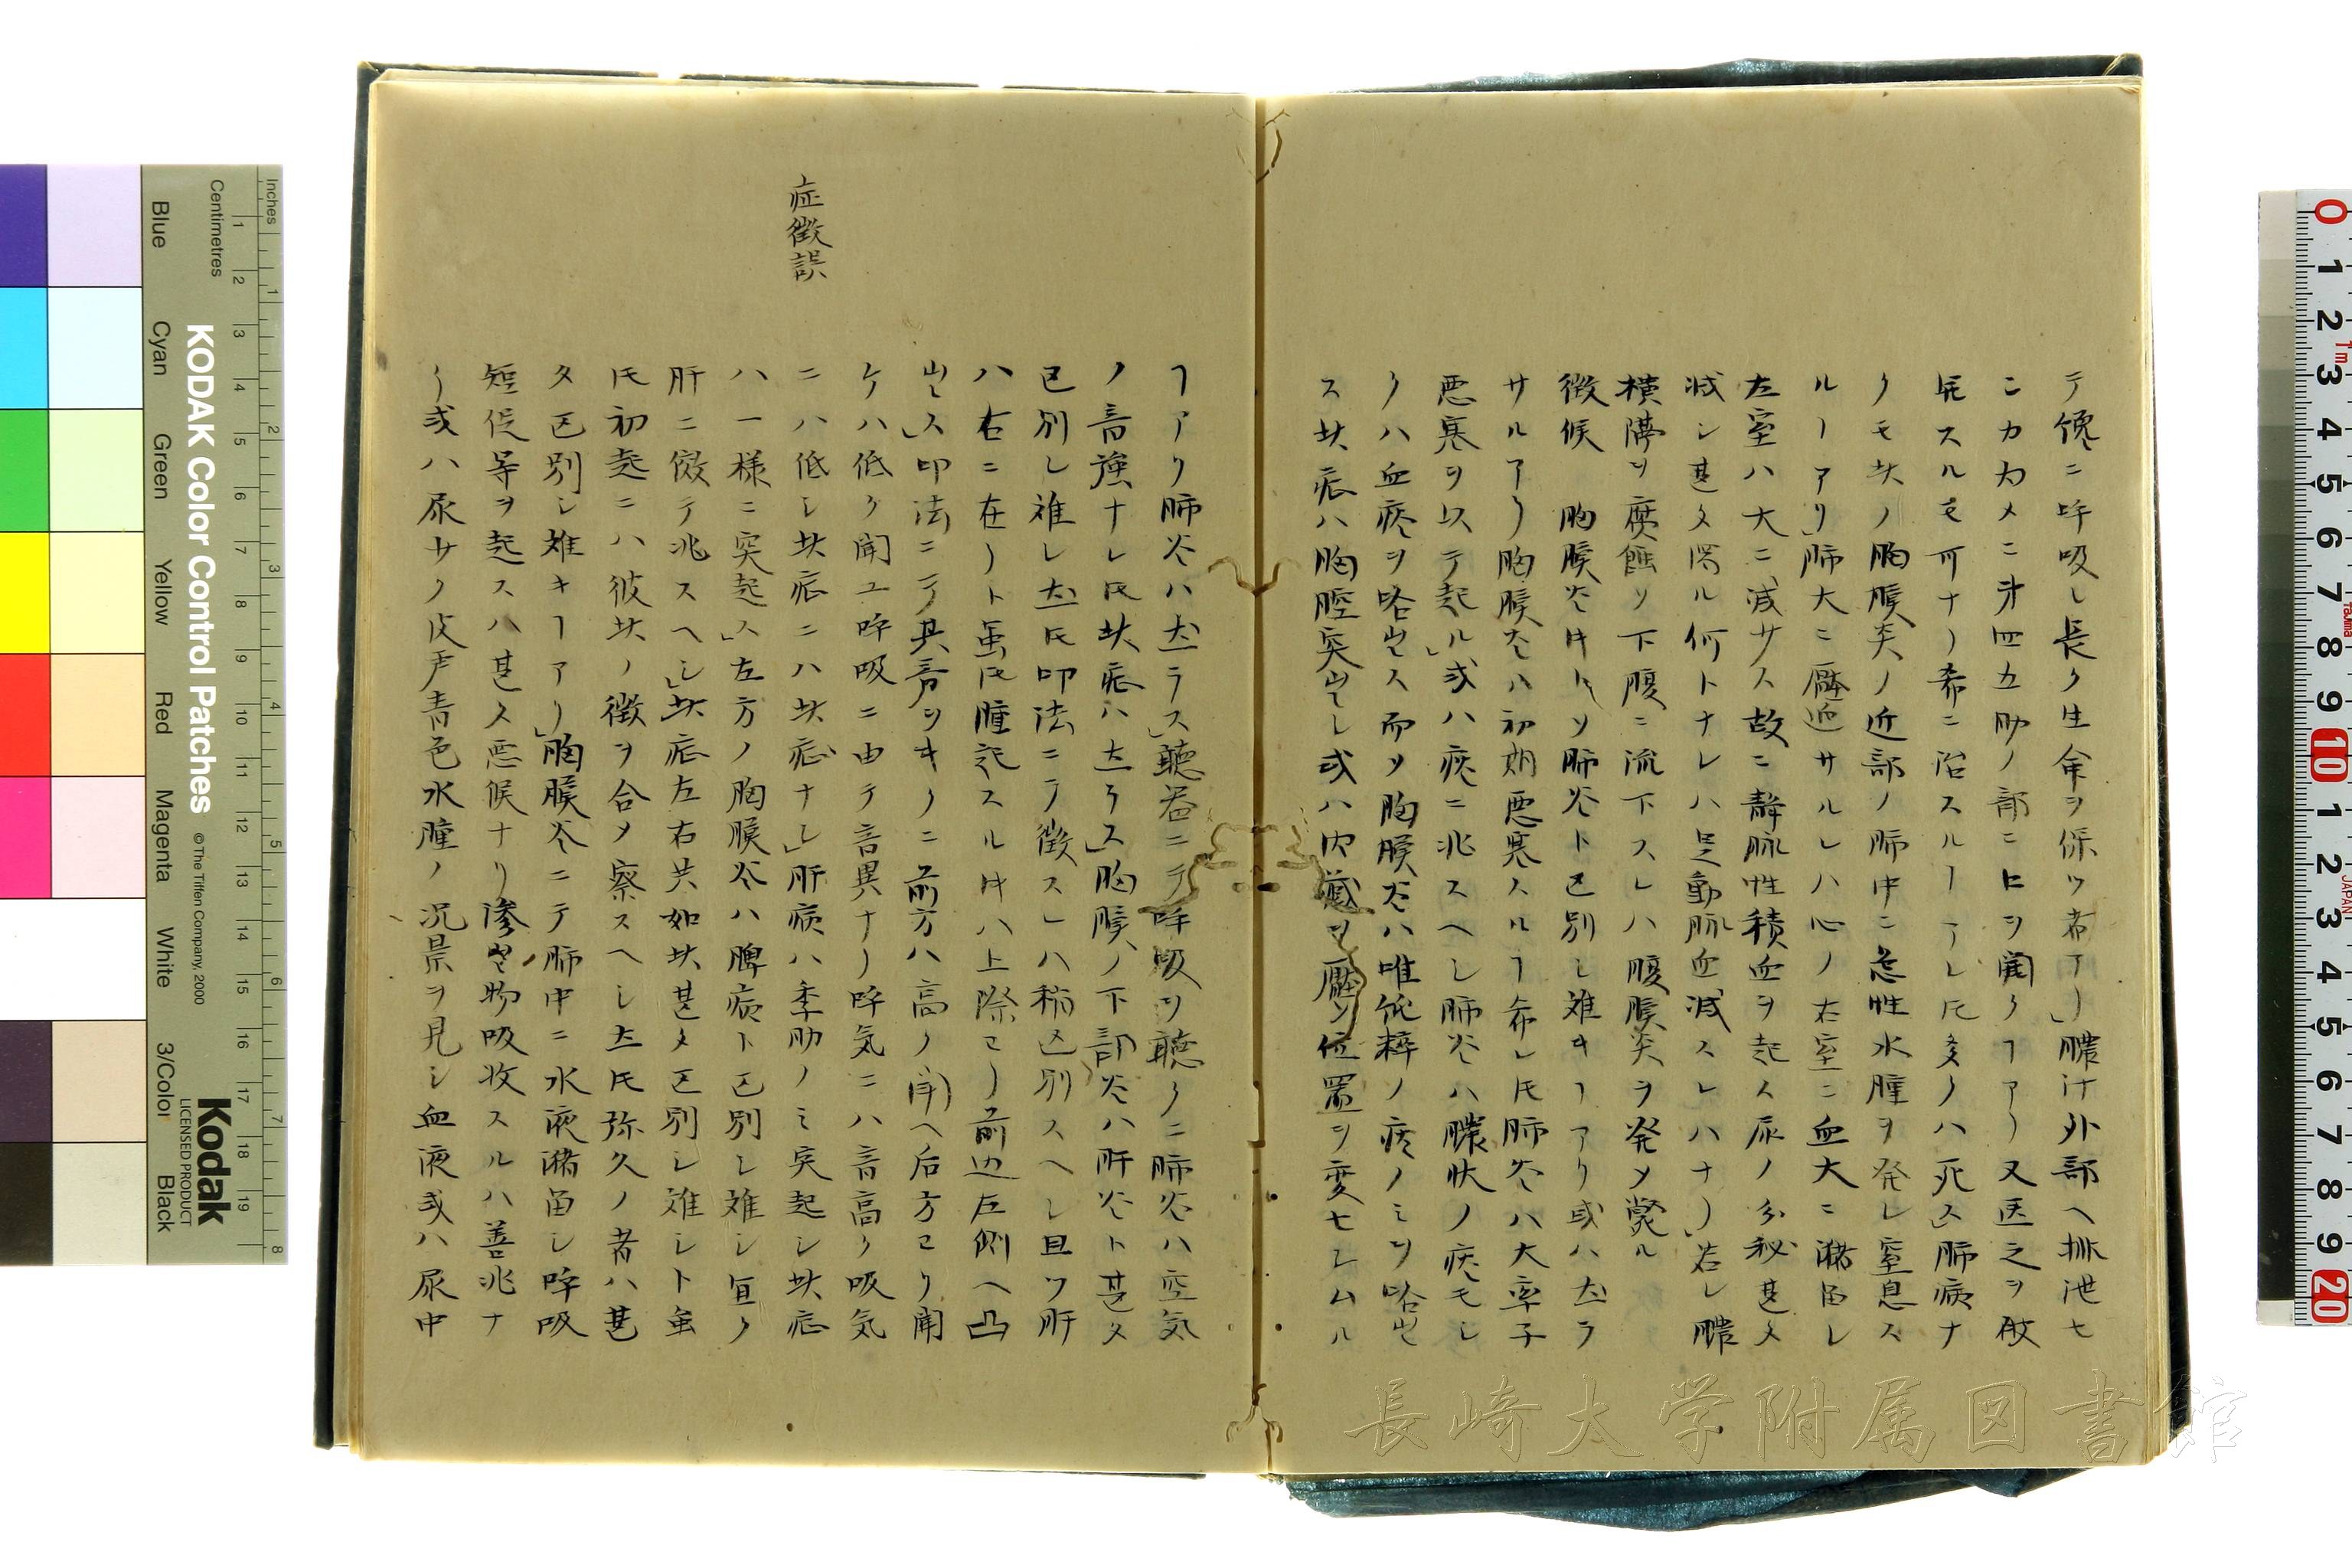 テ僅ニ呼吸し長ク生命ヲ保ツ者アリ」膿汁外部ヘ排泄セ
ンカ為メニ第四五肋ノ部ニ口ヲ開クヿアリ又医之ヲ截
開スルモ可ナリ希ニ治スルヿアレ𪜈多クハ死ス」肺病ナ
クモ此ノ胸膜炎ノ近部ノ肺中ニ急性水腫ヲ発し窒息ス
ルヿアリ」肺大ニ壓迫サルレハ心ノ右室ニ血大ニ瀦留し
左室ハ大ニ減サス故ニ靜脈性積血ヲ起ス尿ノ分秘甚タ
減シ甚タ溷ル何トナレハ是動脈血減スレハナリ」若し膿
横膈ヲ糜蝕ソ下腹ニ流下スレハ腹膜炎ヲ発メ斃ル
徴候 胸膜炎 ソ肺炎ト区別し難キヿアリ或ハ左ラ
サルアリ胸膜炎ハ初期悪寒スルヿ希レ𪜈肺炎ハ大率子
悪寒ヲ以テ起ル」或ハ痰ニ兆スヘし肺炎ハ膿状ノ痰モし
クハ血痰ヲ咯出ス而ソ胸膜炎ハ唯純粋ノ痰ノミヲ咯出
ス此症ハ胸腔突出し或ハ内臓ヲ壓ソ位置ヲ変セしムル
ヿアリ肺炎ハ左ラス」聽器ニテ呼吸ヲ聽クニ肺炎ハ空気
ノ音強ナレ𪜈此症ハ左ラス」胸膜ノ下部炎ハ肝炎ト甚タ
区別し難し左𪜈叩法ニテ徴スレハ稍区別スヘし且ツ肝
ハ右ニ在リト虽𪜈腫起スル ハ上際ヨリ前辺左側ヘ凸
出ス」叩法ニテ其音ヲキクニ前方ハ高ク聞ヘ后方ヨリ聞
ケハ低ク聞ユ呼吸ニ由テ音異ナリ呼気ニハ音高ク吸気
ニハ低し此症ニハ此 ナし」肝病ハ季肋ノミ突起し此症
ハ一様ニ突起ス」左方ノ胸膜炎ハ脾病ト区別し難シ宜ク
肝ニ倣テ兆スヘし」此症左右共如此甚タ区別し難シト虽
𪜈初起ニハ彼此ノ徴ヲ合メ察スヘし左𪜈弥久ノ者ハ甚
タ区別し難キヿアリ」胸膜炎ニテ肺中ニ水液瀦留し呼吸
短促等ヲ起スハ甚タ悪候ナリ滲出物吸收スルハ善兆ナ
リ或ハ尿サノ皮戸青色水腫ノ況景ヲ見シ血液或ハ尿中
症徴誤
長崎大学附属図書館
KODAK Color Control Patches
© The Tiffen Company, 2000
Kodak
LICENSED PRODUCT
Inches
Centimetres
Blue
Cyan
Green
Yellow
Red
Magenta
White
3/Color
Black
JAPAN